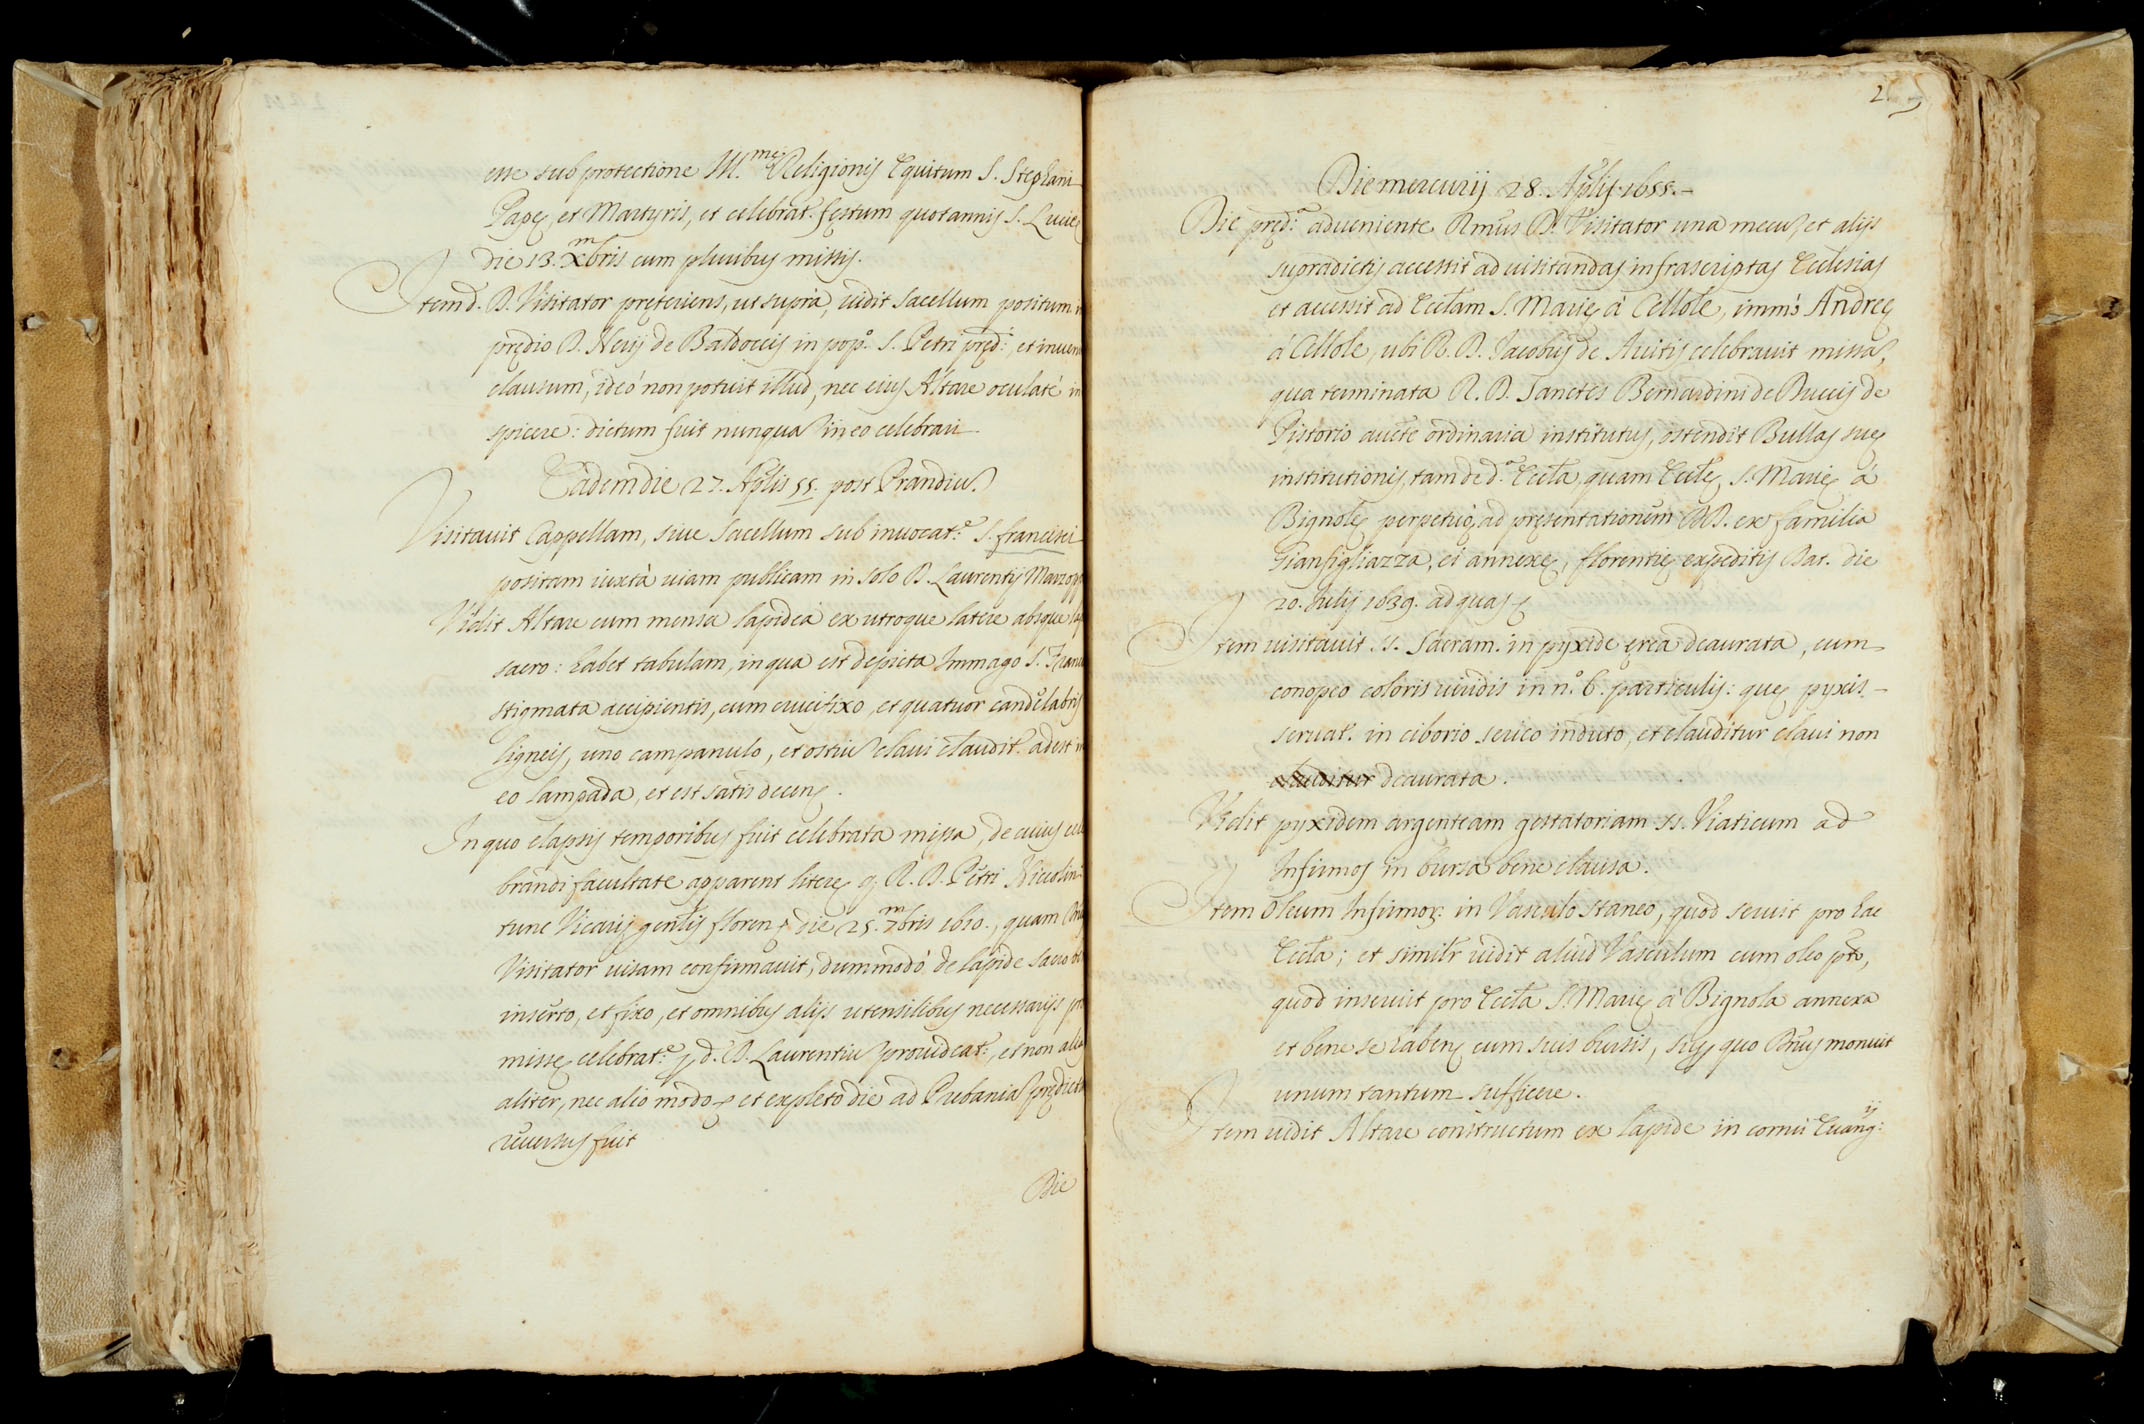 esse sub protectione Ill.me Religionis Equitum S. Stephani
Papę, et Martyris, et celebrat. festum quotannis S. Lucię
die 13. Xmbris cum pluribus missis.
Item d. D. Visitator pręteriens, ut suprà, vidit Sacellum positum in
prędio D. Nerij de Baldoccis in pop.º S. Petri pręd.i et inven
clausum, ideò non potuit illud, nec eius Altare oculatè in
spicere: dictum fuit nunqua in eo celebrari
Eadem die 27. Aplis 55. post Prandiu
Visitavit Cappellam, sive Sacellum sub invocat.e S. francisci
positam iuxtà viam publicam in solo D. Laurentij
Vidit Altare cum mensa lapidea ex utroque latere absque
sacro: habet tabulam, in qua est depicta Immago S. Franc
stigmata accipientis, cum crucifixo, et quatuor candelabris
ligneis, uno campanulo, et ostiu clavi claudit. adest in
eo lampada, et est satis decens.
In quo elapsis temporibus fuit celebrata missa, de cuius cele
brandi facultate apparent literę q R. D. Petri Niccolini
tunc Vicarij gentis floren die 25. 7mbris 1610., quam
Visitator visam confirmavit, dummodò de lapide sacro
inserto, et fixo, et omnibus alijs utensilibus necessarijs pro
missę celebrat.e p d. D. Laurentiu provideat., et non
aliter, nec alio modo et expleto die ad Plebania prędicta
reversus fuit
Die
2
Die mercurij 28. Aplis 1655.
Die pręd.a adveniente Rmus D. Visitator una mecu, et alijs
supradictis accessit ad visitandas infrascriptas Ecclesias
et accessit ad Ecclam S. Marię à Cellole, immò Andreę
à Cellole, ubi R. D. Jacobus de Avitis celebravit missa,
qua terminata R. D. Sanctes Bernardini de Buccis de
Pistorio aucte ordinaria institutus, ostendit Bullas suę
institutionis, tam de d.a Eccla, quam Ecclę S. Marię à
Bignolę perpetuò, ad pręsentationem DD. ex familia
Gianfigliazza, ei annexę, florentię expeditis Dat. die
20. Julij 1639. ad quas
Item visitavit SS. Sacram. in pyxide ęrea deaurata, cum
conopeo coloris viridis in n.º 6. particulis: quę pyxis
servat. in ciborio serico induto, et clauditur clavi non
clauditur deaurata.
Vidit pyxidem argenteam gestatoriam SS. Viaticum ad
Infirmos in bursa bene clausa.
Item Oleum Infirmor: in Vasculo staneo, quod servit pro hac
Eccla; et similr vidit aliud Vasculum cum oleo pto,
quod inservit pro Eccla S. Marię à Bignola annexa
et bene se habens cum suis bursis, sup quo Dnus monuit
unum tantum sufficere.
Item vidit Altare constructum ex lapide in cornu Evang:ij